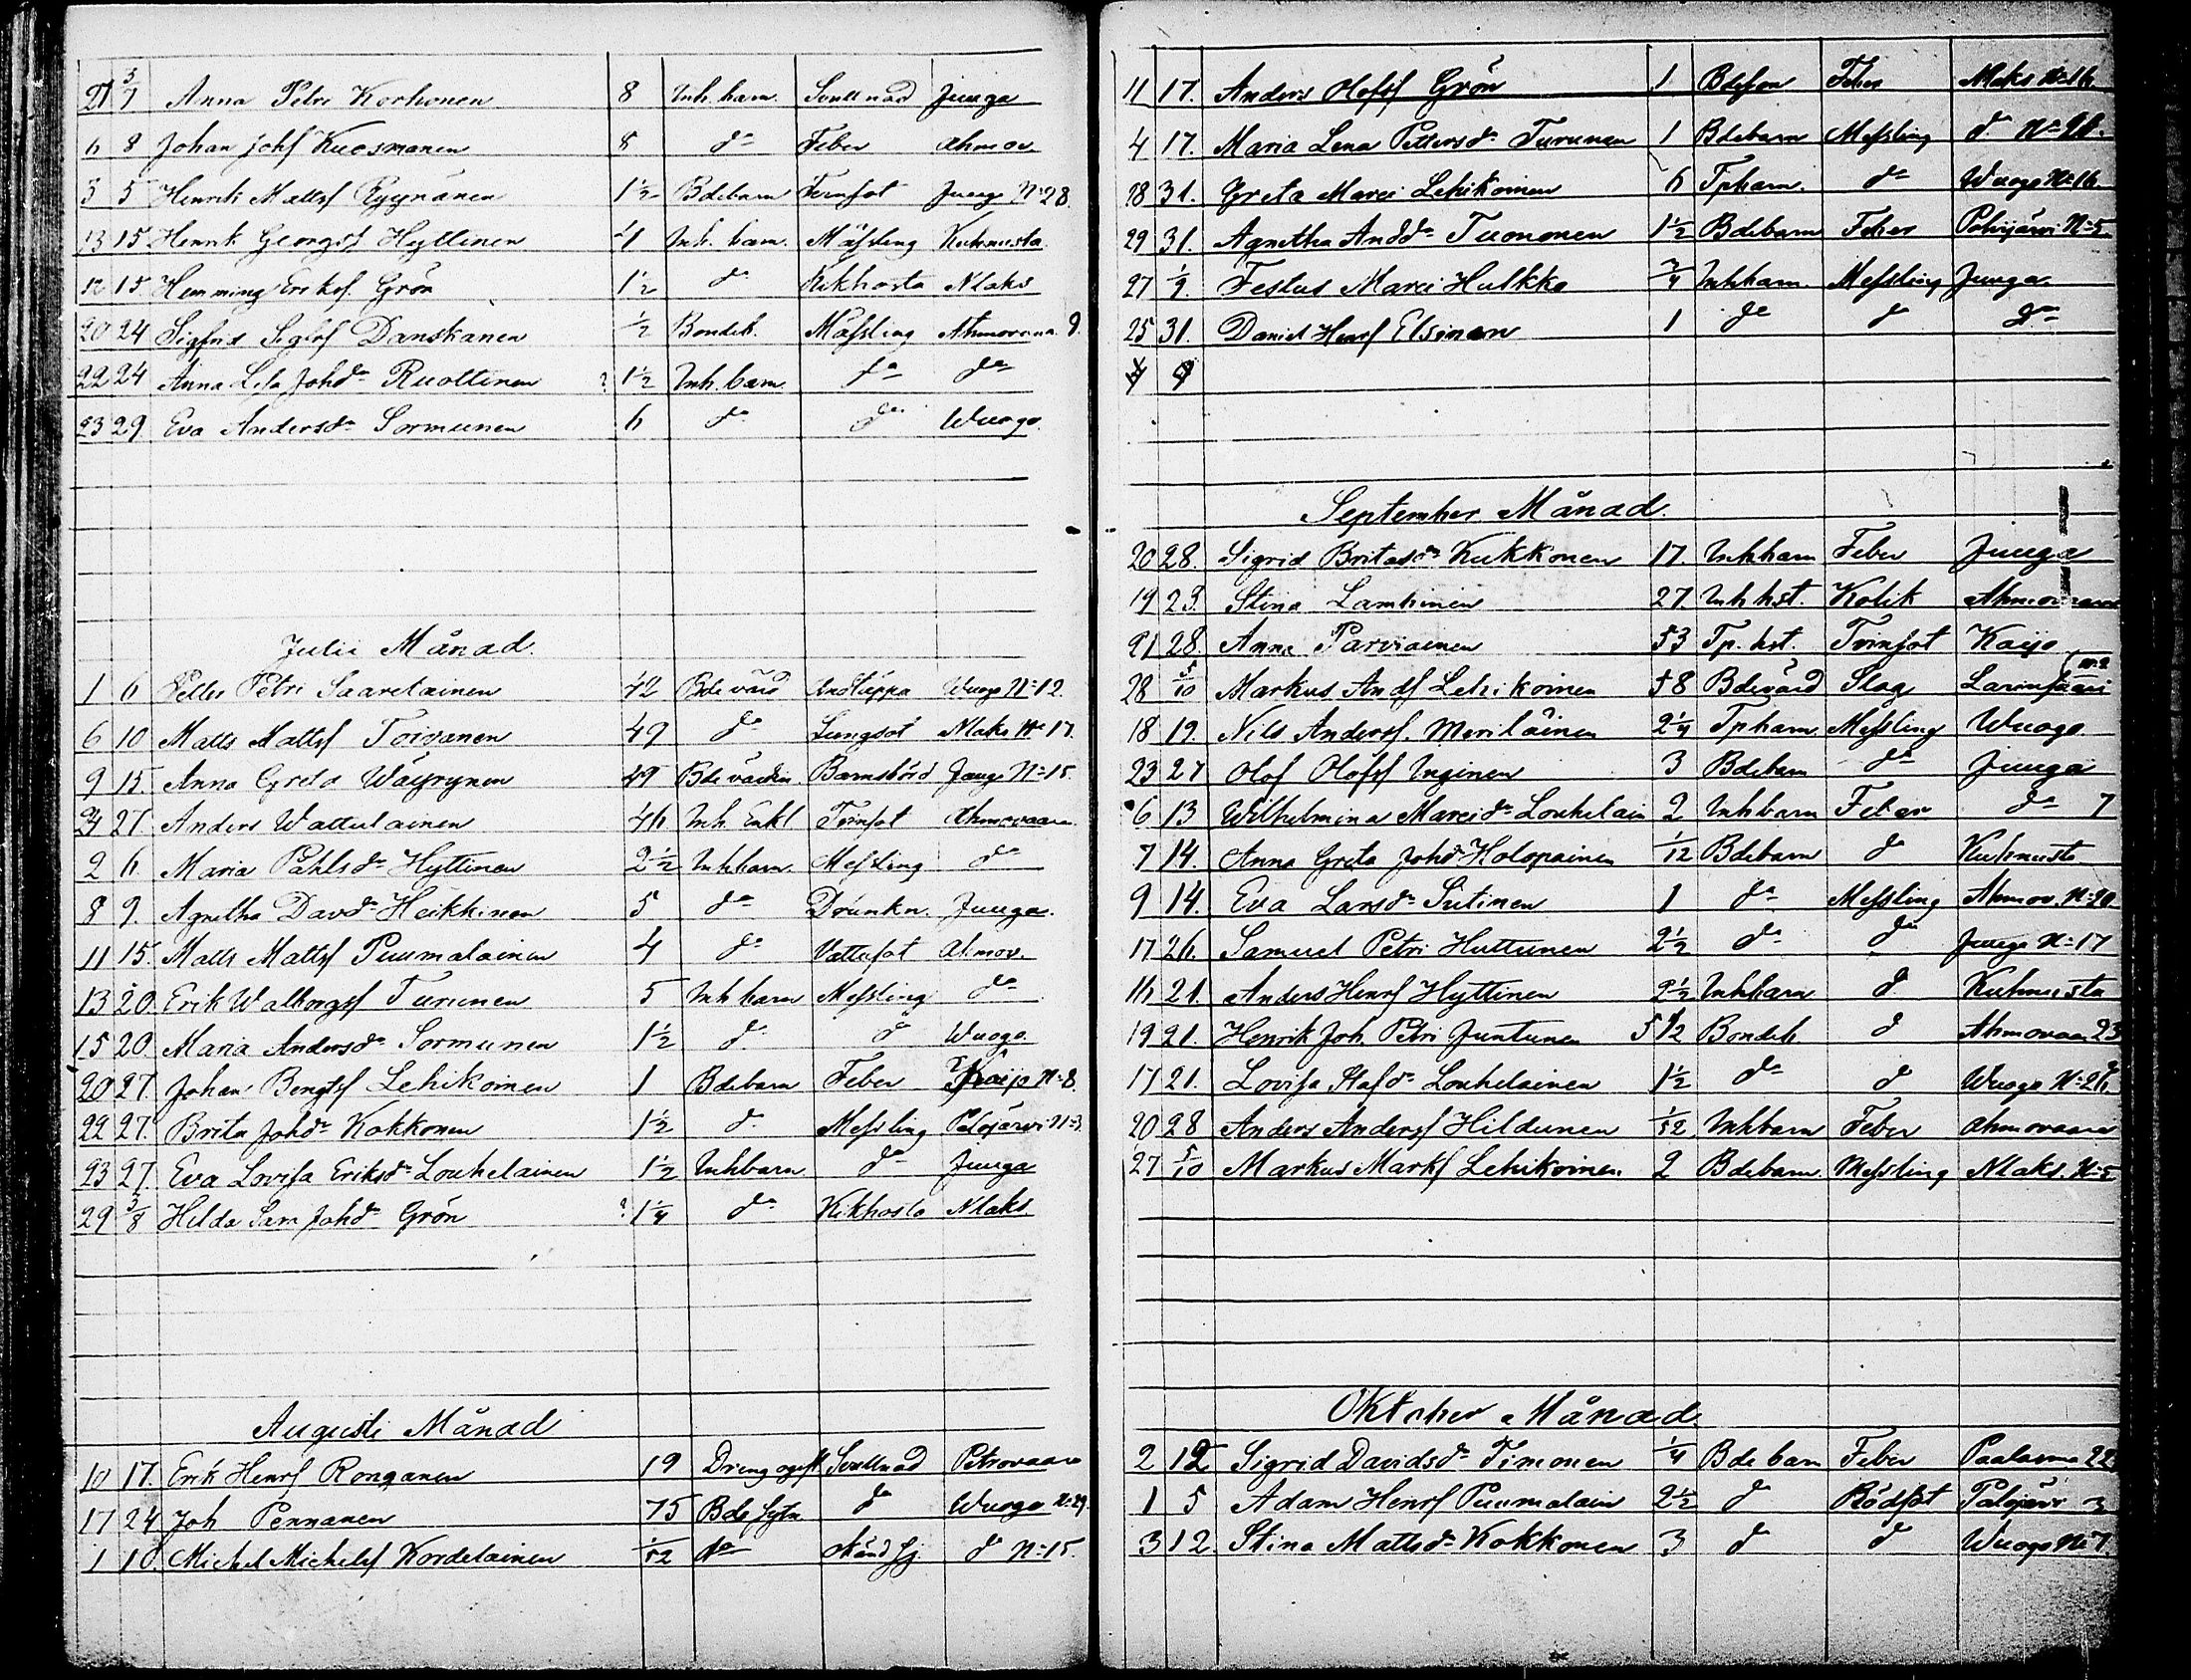 21 3/7 Anna Petri Korhonen 8 Inh. barn. Svullnad Juuga
6 8 Johan Johs Kuosmanen 8 do Feber Ahmov
3 5 Henrik Matts Ryynänen 1½ Bdebarn Tvinsot Juuga No 28.
13 15 Henrik Georgs Hyttinen 4 Inh. barn. Mässling Kuhnusta
12 15 Hemming Eriks. Grön 1½ do Kikhosta Nlaks
20 24 Sigfrid Sigfrs Danskanen ½ Bondeb. Mässling Ahmovaara 9.
22 24 Anna Lisa Johdr Ruottinen ? 1½ Inh. barn. do do
23 29 Eva Andersdr Sormunen 6 do do Wuogo.
Julii Månad.
1 6 Petter Petri Saarelainen 42 Bdevärd Andtäppa Wuogo No 12.
6 10 Matts Matts Toivanen 49 do Lungsot Nlaks No 17.
9 15. Anna Greta Wäyrynen 49 Bdevärdin. Barnsbörd Juuga No 15.
24 27 Anders Wattulainen 46 Inh. Enkl Tvinsot Ahmovaara
2 6. Maria Påhlsdr Hyttinen 2½ Inhbarn. Messling do
8 9. Agnetha Davdr Heikkinen 5 do Drunkn. Juuga.
11 15. Matts Matts Puumalainen 4 do Vattusot Ahmov.
13 20. Erik Walborgs Turunen 5 Inhbarn Messling do
15 20. Maria Andersdr Sormunen 1½ do do Wuogo.
20 27. Johan Bengts Lehikoinen 1 Bdebarn Feber Kaijo No 8.
22 27. Brita Johdr Kokkonen 1½ do Messling Polojärvi No 3.
23 27. Eva Lovisa Eriksdr Louhelainen 1½ Inhbarn do Juuga
29 3/8 Hilda Sara Johdr Grön ? 1¼ do Kikhosta Nlaks.
Augusti Månad
10 17. Erik Henrs Ronganen 19 Dreng ogift Svullnad Petrovaara
17 24 Joh Pennanen 75 Bde sytn do Wuogo No 29.
1 10. Michel Michels Kordelainen 1/52 do do No 15.
11 17. Anders Olofs Grön 1 Bdeson Feber Nlaks No 16.
4 17. Maria Lena Pettersdr Turunen 1 Bdebarn Messling do No 26.
28 31. Greta Marci Lehikoinen 6 Tpbarn. do Wuogo No 16
29 31. Agnetha Anddr Tuononen 1½ Bdebarn Feber Polvijärvi No 5
27 1/9. Festus Marci Hulkko ¾ Inhbarn. Messling Juuga.
25 31. Daniel Henrs Elsinen 1 do do do
September Månad.
20 28. Sigrid Britasdr Kukkonen 17. Inhbarn Feber Juuga
19 23. Stina Lamhinen 27. Inh hst. Kolik Ahmovaara
21 28. Anna Parviainen 53 Tp. hst. Tvinsot Kaijo
28 5/10 Markus Ands Lehikoinen 58 Bdevärd Slag Larinsaari No 2
18 19. Nils Anders. Meriläinen 2¼ Tpbarn. Messling Wuogo
23 27 Olof Olofs Inginen 3 Bdebarn do Juuga
6 13 Wilhelmina Marcidr Louhelain 2 Inhbarn Feber do 7
7 14. Anna Greta Johdr Holopainen 1/12 Bdebarn do Kuhnusta
9 14. Eva Larsdr Sutinen 1 do Messling Ahmov. No 20
17 26. Samuel Petri Huttunen 2½ do do Juuga No 17
16 21. Anders Henrs Hyttinen 2½ Inhbarn do Kuhnusta
19 21. Henrik Joh. Petri Juntunen 5½ Bondeb do Ahmovaara 23
17 21. Lovisa Stafdr Louhelainen 1½ do do Wuogo No 26.
20 28 Anders Anders Hildunen 1/52 Inhbarn Feber Ahmovaara
27 5/10 Markus Marks Lehikoinen 2 Bdebarn. Messling Nlaks. No 5
Oktober Månad.
2 12 Sigrid Davidsdr Timonen ¼ Bdebarn Feber Paalasmaa 22
1 5 Adam Henrs Puumalain 2½ do Rödsot Polojärvi 3
3 12. Stina Mattsdr Kokkonen 3 do do Wuogo No 7.